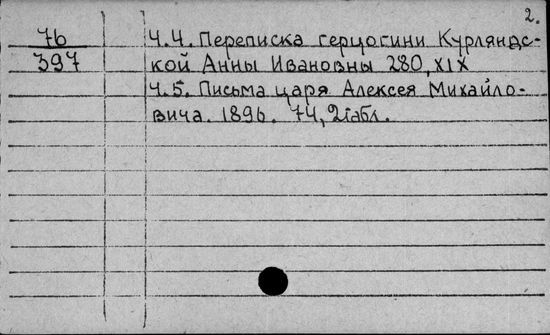 2.
76
397
Ч.4. Переписка герцогини Курляндс-
кой Анны Ивановны 280, XIX
Ч.5. Письма царя Алексея Михайло-
вича. 1896. 74, 2 табл.